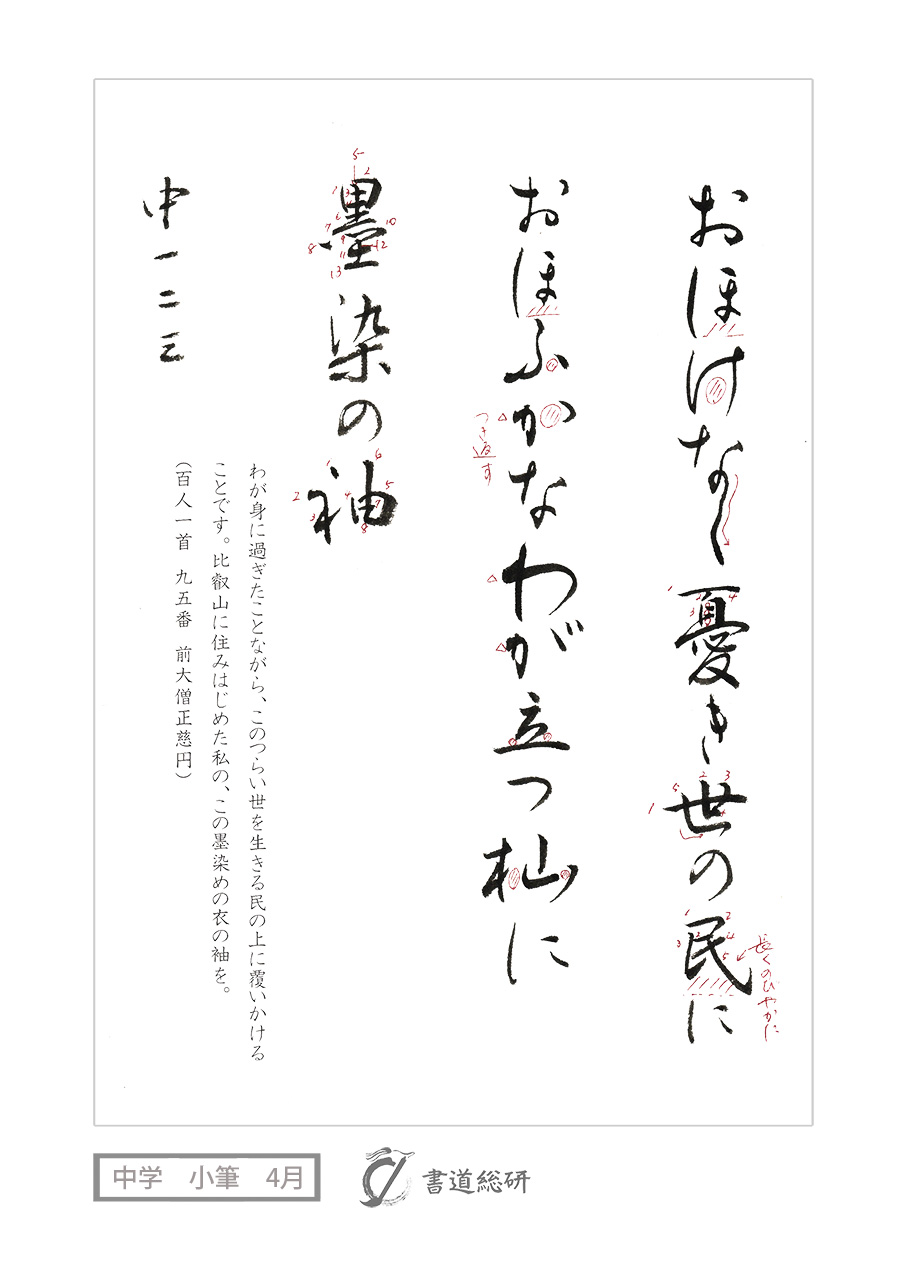 おほけなく憂き世の民に
長くのびやかに
おほふかなわが立つ杣に
つき返す
墨染の袖
わが身に過ぎたことながら、このつらい世を生きる民の上に覆いかける
ことです。比叡山に住みはじめた私の、この墨染めの衣の袖を。
(百人一首 九五番 前大僧正慈円)
中一二三
中学 小筆 4月
書道総研